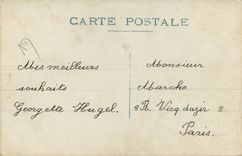 CARTE POSTALE
Mes meilleurs
souhaits
Georgette Hugel.
Monsieur
Marcho
R. Vicq dazir 2
Paris.